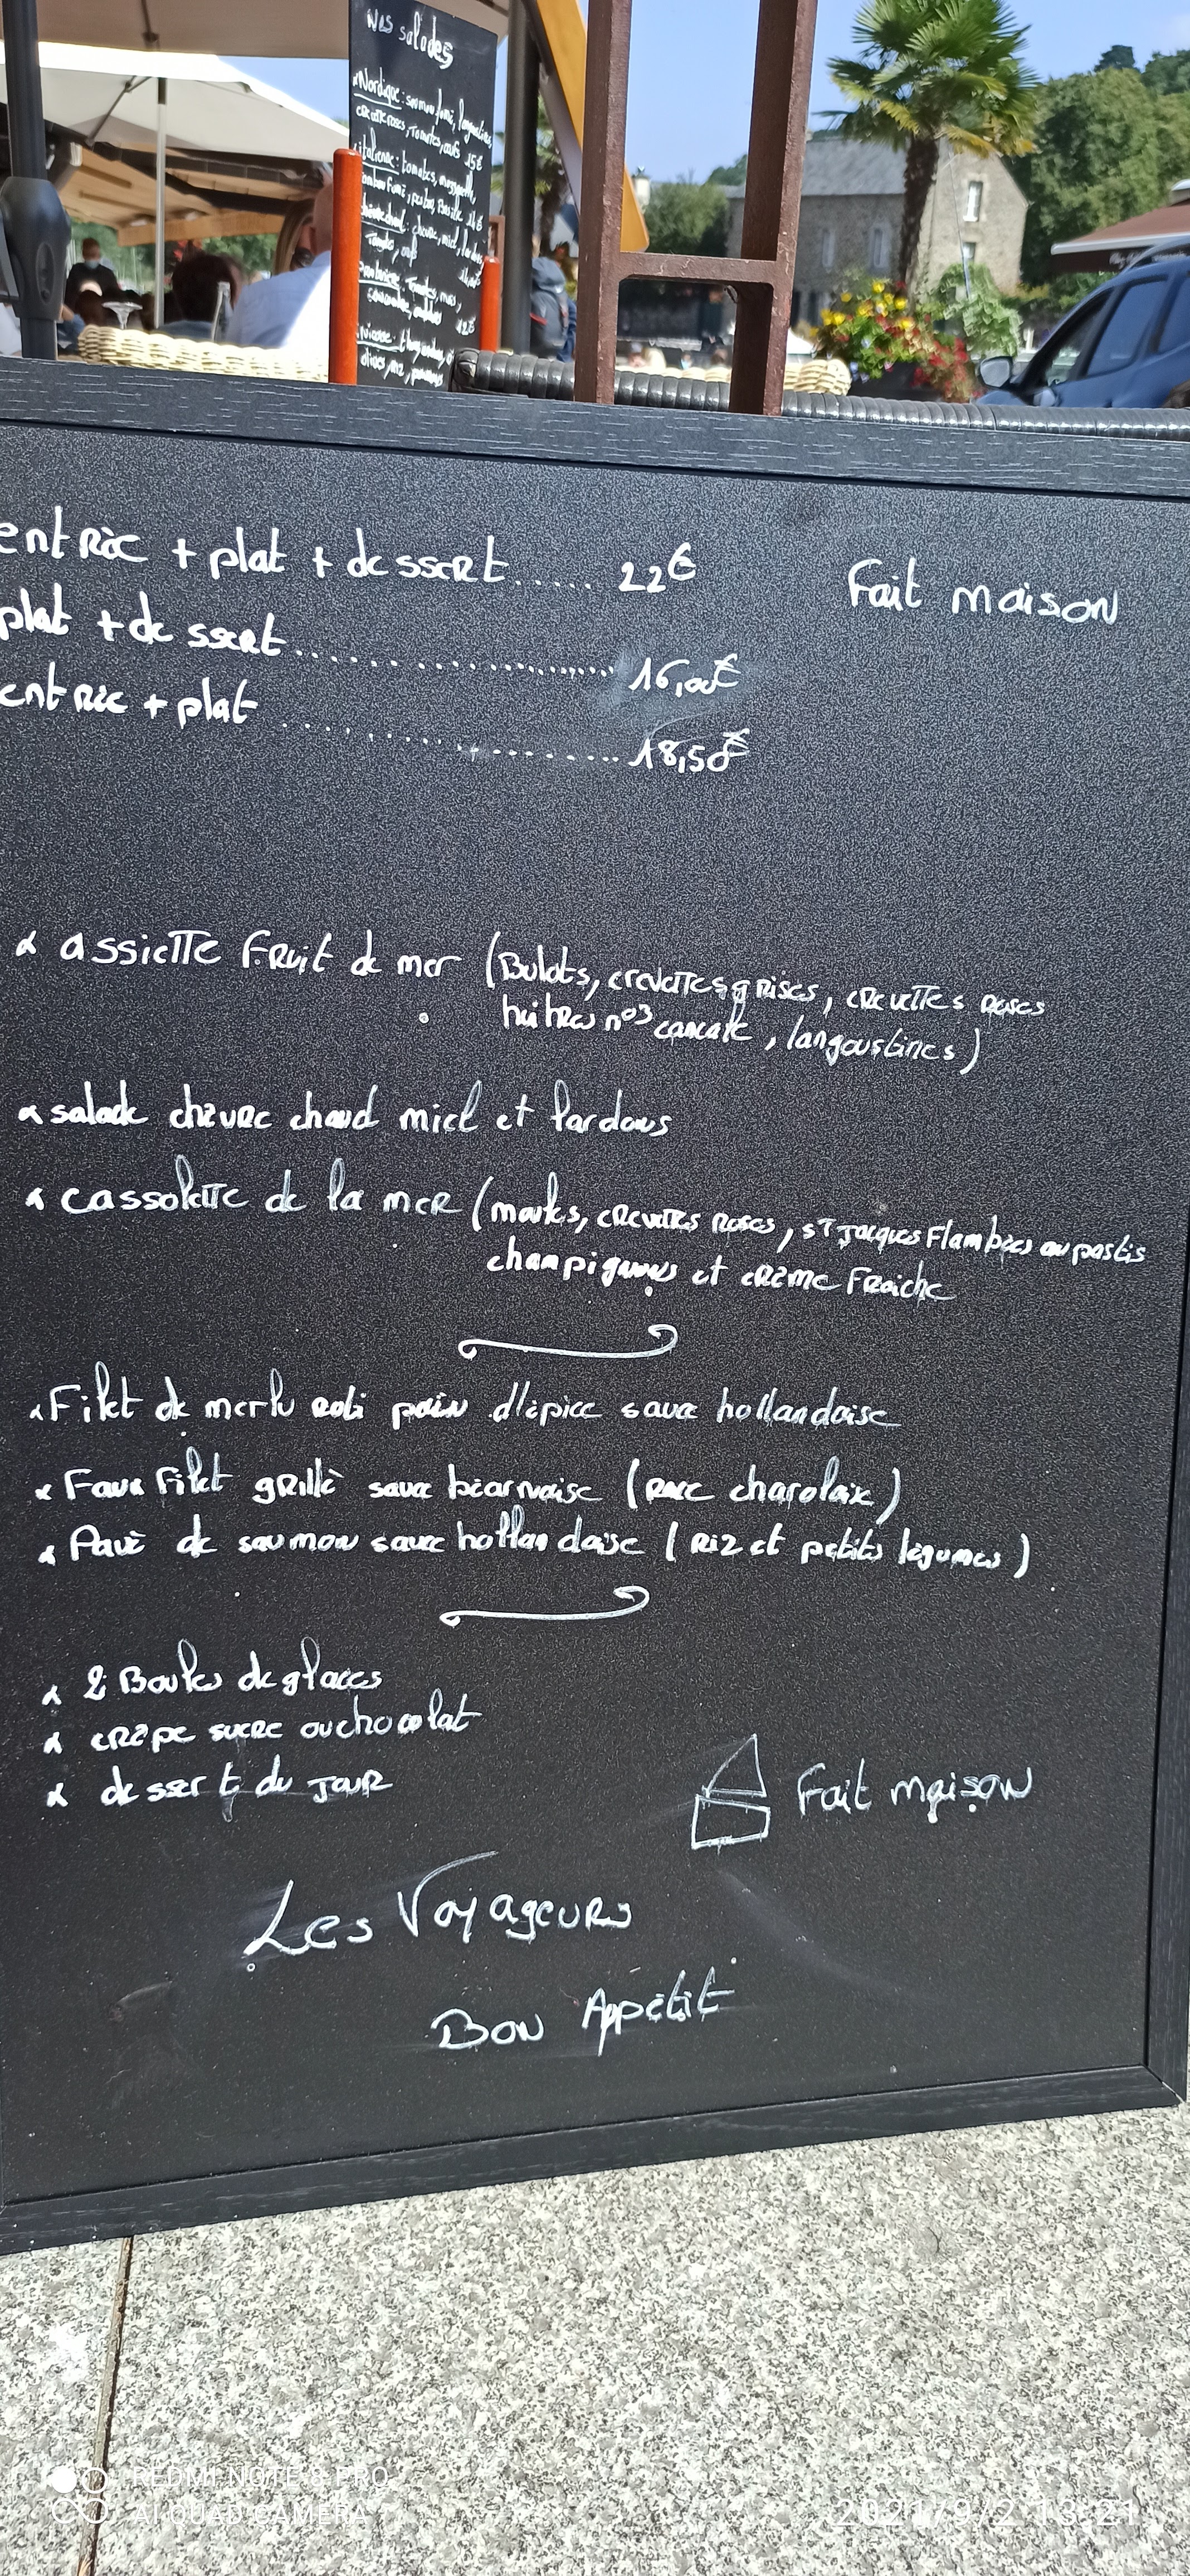 Nos salades
Nordique : saumon fumé, langoustines,
crevettes roses, Tomates, oeufs 15€
italienne : tomates, mozzarella,
jambon fumé, pesto, Basilic 14€
chèvre chaud : chèvre, miel, lardons
Tomates, oeufs
Tomates, maïs,
12€
niçoise : thon, anchois,
olives, riz, poivrons
entRée + plat + dessert..... 22€
Fait maison
plat + dessert.......................... 16,00€
entRée + plat .......................... 18,50€
assieTTe FRuit de mer (Bulots, crevettes grises, crevettes roses
huitres n°3 cancale, langoustines)
salade chèvre chaud miel et lardons
cassolette de la meR (moules, crevettes roses, sT Jacques Flambées au pastis
champignons et crème Fraiche
Filet de merlu roti pain d'épice sauce hollandaise
Faux Filet grillé sauce béarnaise (race charolaix)
Pavé de saumon sauce hollandaise (Riz et petits légumes)
2 Boules de glaces
crêpe sucre ou chocolat
dessert du Jour
Fait maison
Les Voyageurs
Bon Appétit
REDMI NOTE 8 PRO
AI QUAD CAMERA
2021/9/2 13:21